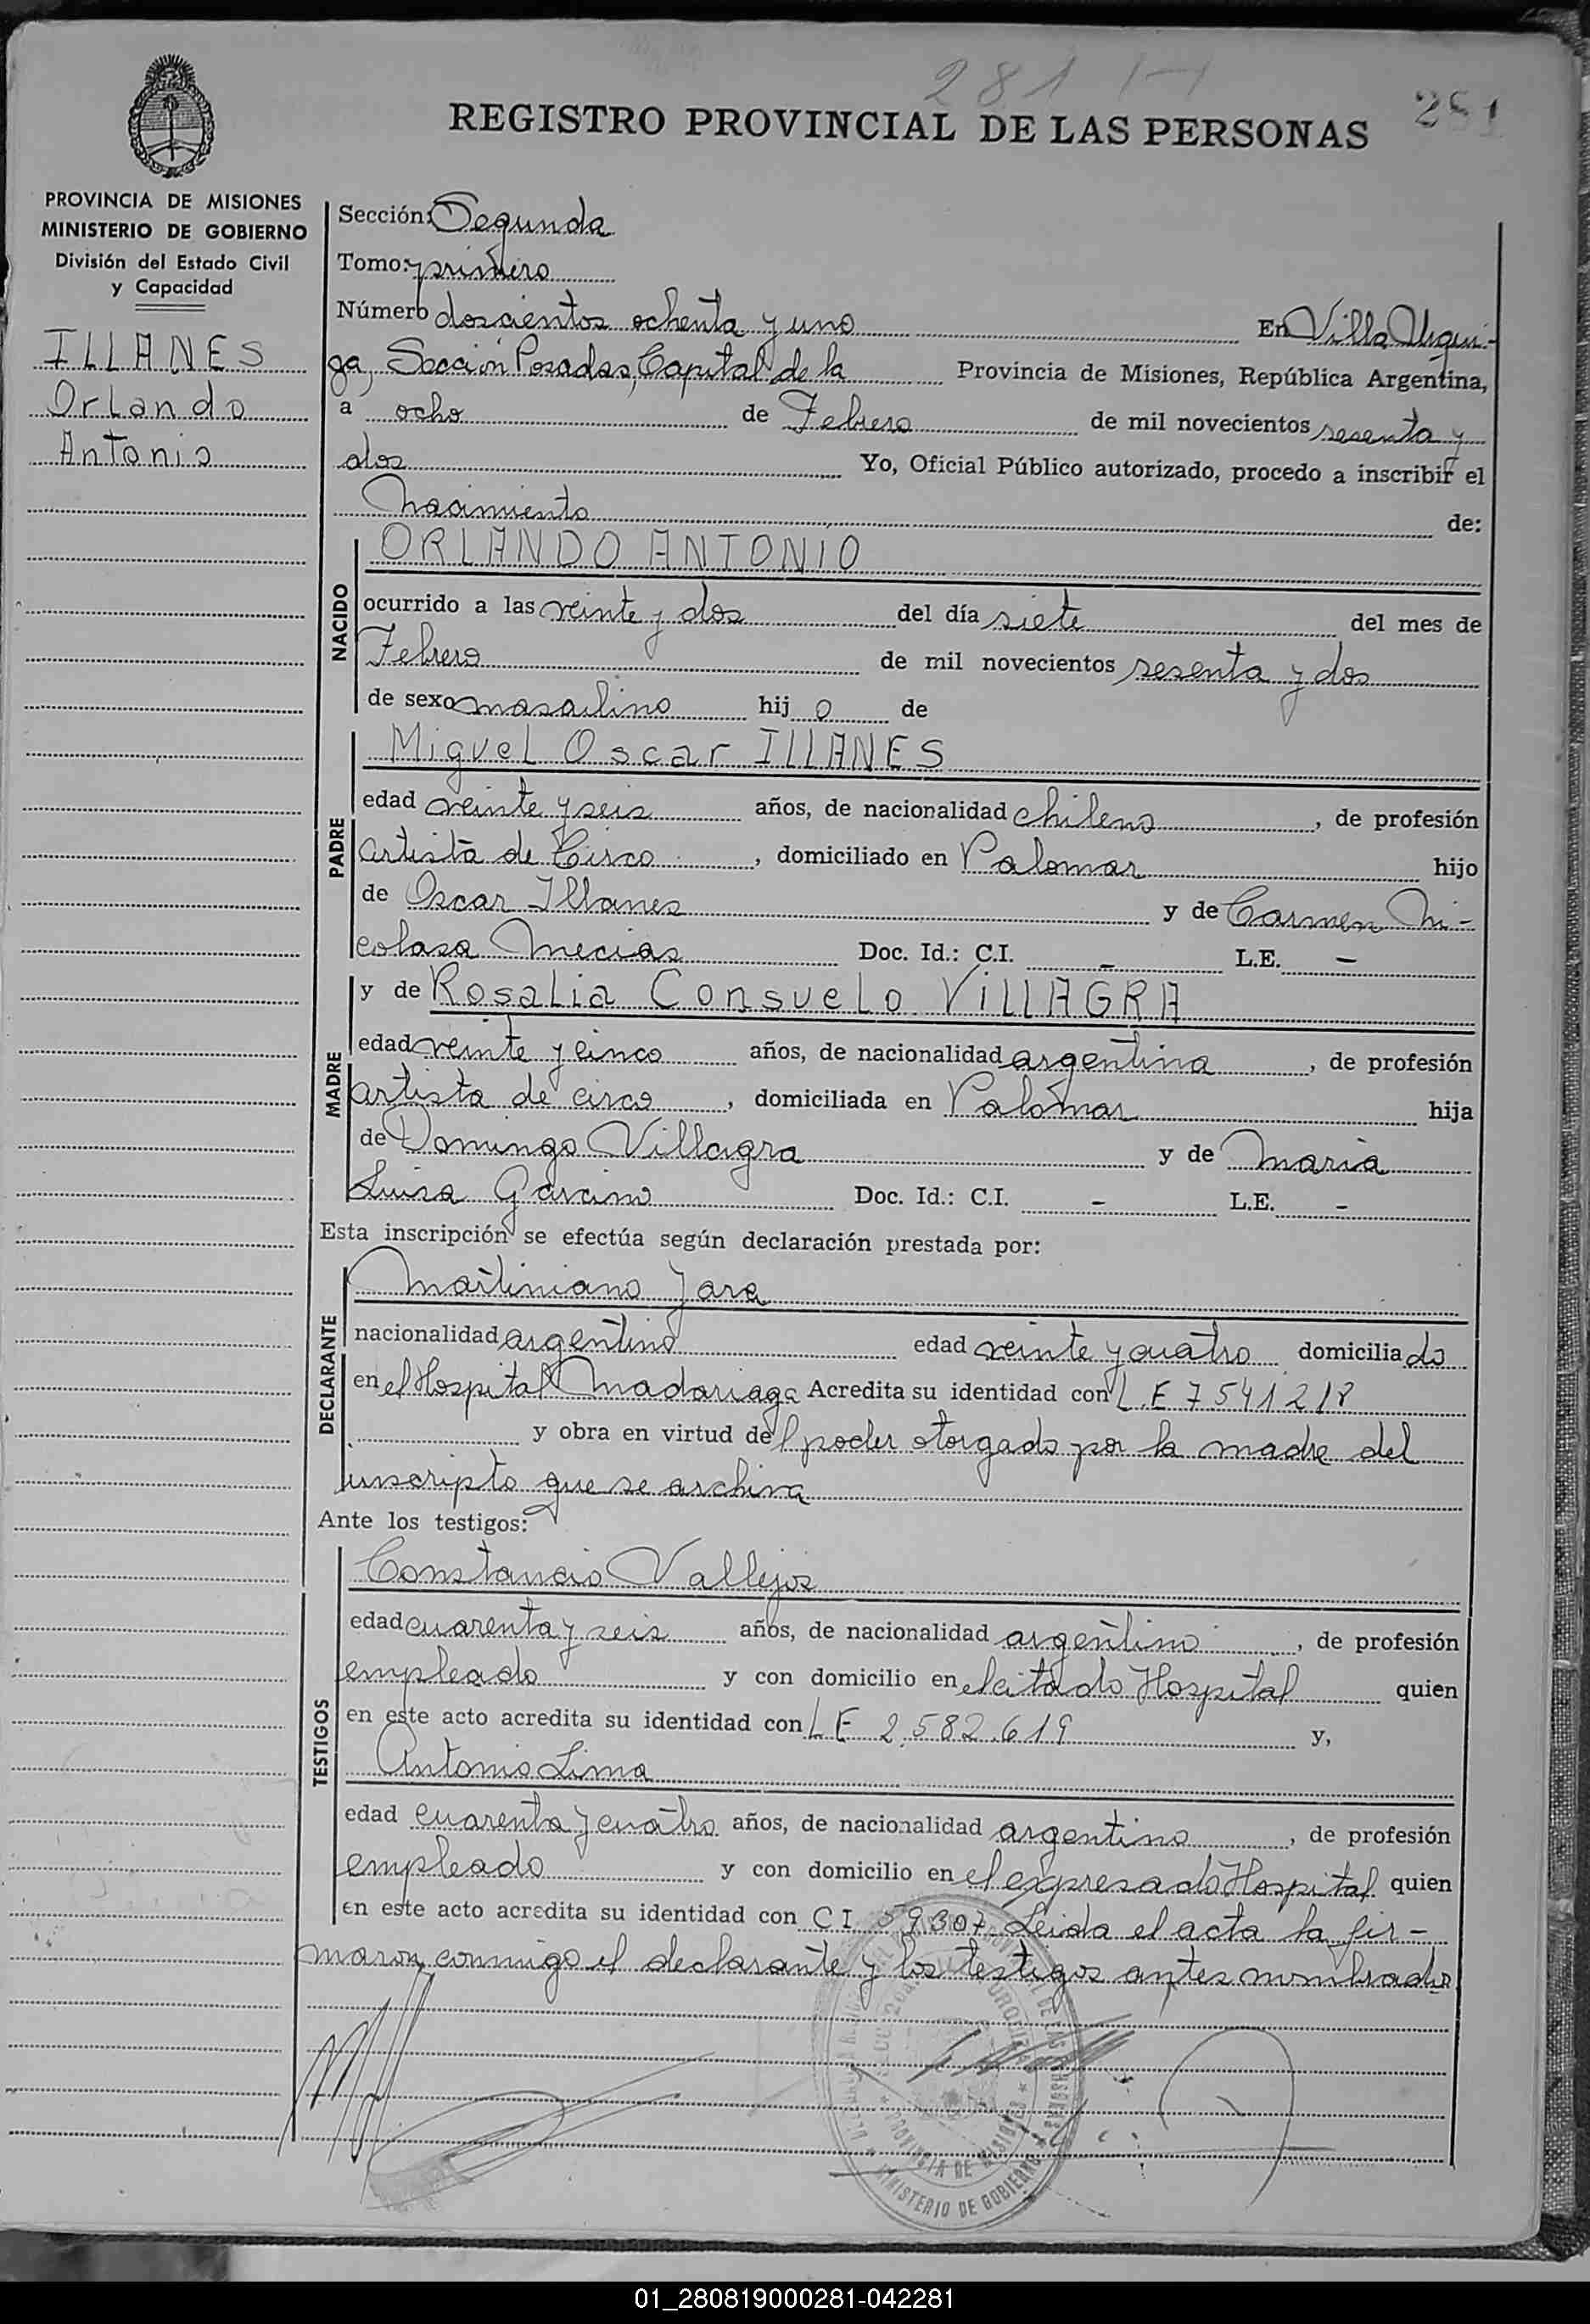 281
281
REGISTRO PROVINCIAL DE LAS PERSONAS
PROVINCIA DE MISIONES
MINISTERIO DE GOBIERNO
División del Estado Civil
y Capacidad
ILLANES
Orlando
Antonio
Sección: Segunda
Tomo: primero
Número doscientos ochenta y uno En Villa Urqui-
za, Sección Posadas, Capital de la Provincia de Misiones, República Argentina,
a ocho de Febrero de mil novecientos sesenta y
dos Yo, Oficial Público autorizado, procedo a inscribir el
Nacimiento de:
NACIDO
ORLANDO ANTONIO
ocurrido a las veinte y dos del día siete del mes de
Febrero de mil novecientos sesenta y dos
de sexo masculino hij o de
PADRE
Miguel Oscar ILLANES
edad veinte y seis años, de nacionalidad chileno, de profesión
artista de Circo, domiciliado en Palomar hijo
de Oscar Illanes y de Carmen Ni-
colasa Mecias Doc. Id.: C.I. - L.E. -
MADRE
y de Rosalia Consuelo VILLAGRA
edad veinte y cinco años, de nacionalidad argentina, de profesión
artista de circo, domiciliada en Palomar hija
de Domingo Villagra y de Maria
Luisa Doc. Id.: C.I. - L.E. -
Esta inscripción se efectúa según declaración prestada por:
DECLARANTE
Martiniano Jara
nacionalidad argentino edad veinte y cuatro domicilia do
en el Hospital Madariaga Acredita su identidad con L.E 7541218
y obra en virtud de l poder otorgado por la madre del
inscripto que se archiva
Ante los testigos:
TESTIGOS
Constancio Vallejos
edad cuarenta y seis años, de nacionalidad argentino, de profesión
empleado y con domicilio en el citado Hospital quien
en este acto acredita su identidad con L E 2.582.619 y,
Antonio Lima
edad cuarenta y cuatro años, de nacionalidad argentino, de profesión
empleado y con domicilio en el expresado Hospital quien
en este acto acredita su identidad con C I 59307. Leida el acta la fir-
maron conmigo el declarante y los testigos antes nombrados
PROVINCIA DE MISIONES
MINISTERIO DE GOBIERNO
01_280819000281-042281